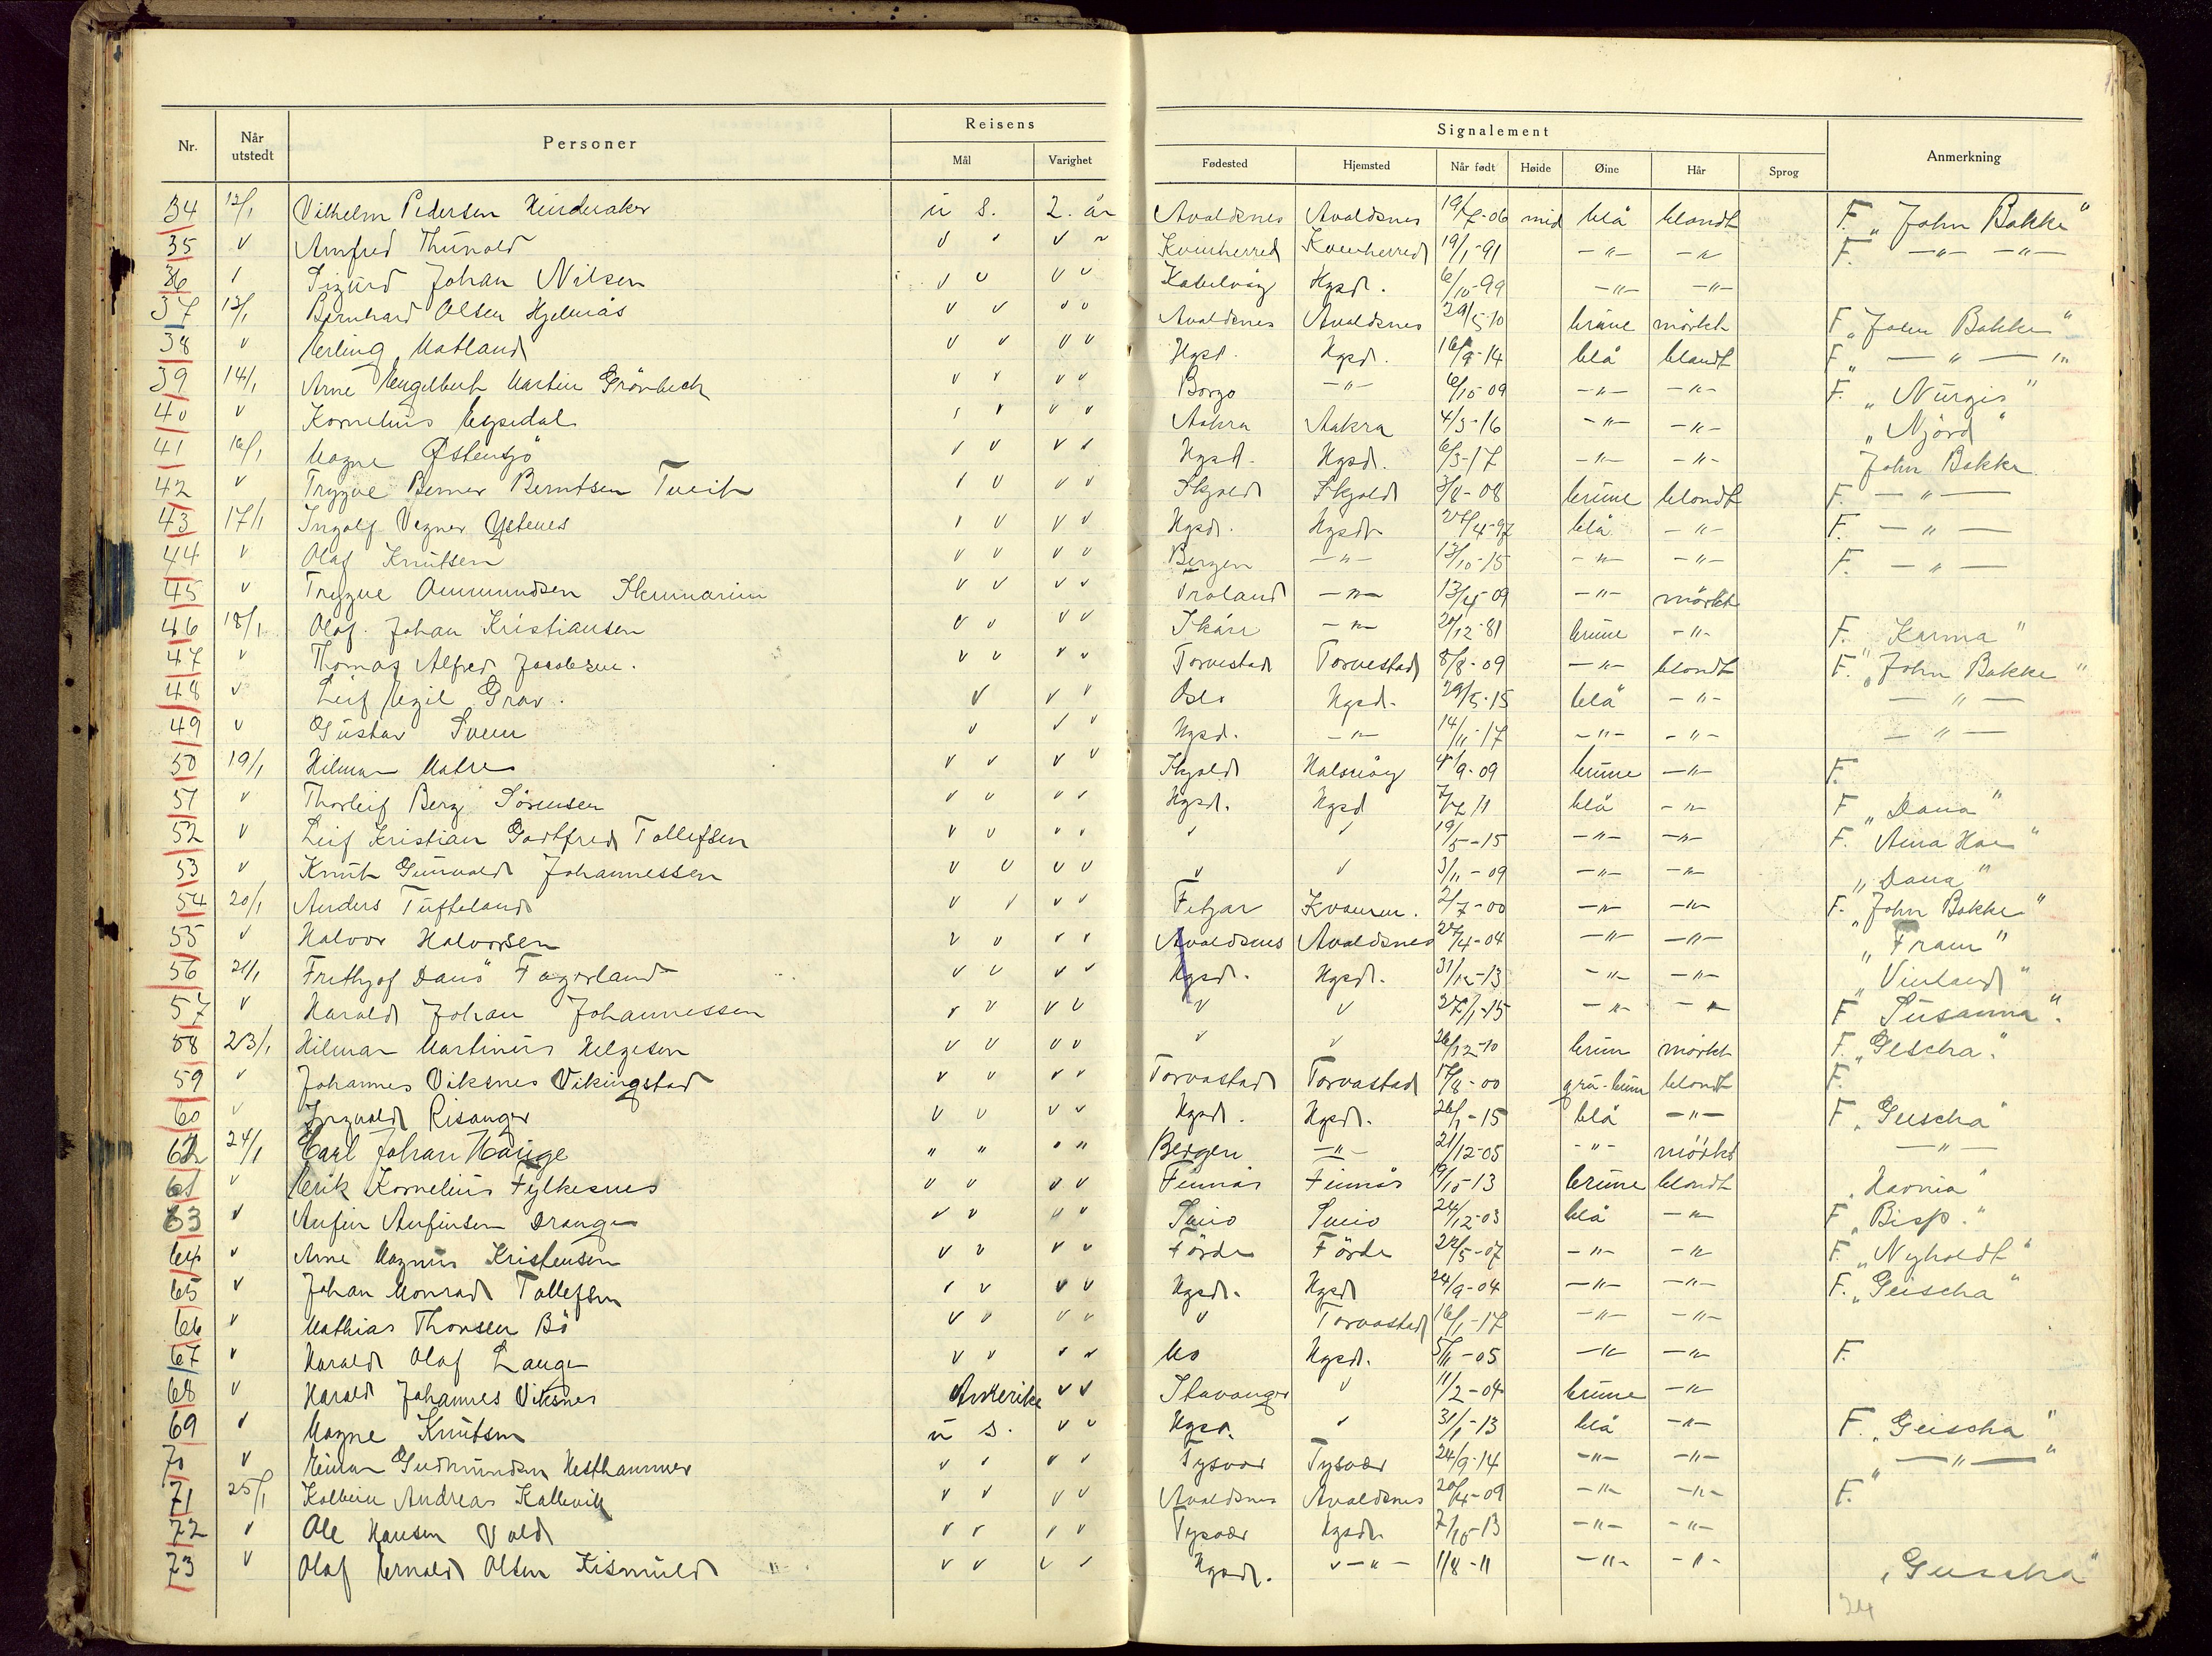 Nr. Når utstedt Personer Reisens Mål Varighet Signalement Fødested Hjemsted Når født Høide Øine Hår Sprog Anmerkning
34 12/1 Vilhelm Pedersen u s. 2. år Avaldsnes Avaldsnes 19/7-06 mid blå blondt F. „John Bakke"
35 v Arnfred Thunold v v v v Kvinherred Kvinherred 19/1-91 -"- -"- F. -"- -"-
36 Sigurd Johan Nilsen v v v v Kabelvåg Hgsd. 6/10-99 -"- -"-
37 13/1 Bernhard Olsen Hjelmås v v v v Avaldsnes Avaldsnes 29/5-10 brune mørkt F „John Bakke"
38 v Erling Matland v v v v Hgsd. Hgsd. 16/9-14 blå blandt F „ -"-
39 14/1 Arne Engelbert Martin Grønbech v v v v Borge -"- 6/10-09 -"- -"- F. „Nurgis"
40 v Kornelius v v v v Aakra Aakra 4/3-16 -"- -"- „Njörd"
41 16/1 Magne Østensjö v v v v Hgsd. Hgsd. 6/3-17 -"- -"- John Bakke
42 v Trygve Berner Berntsen Tveit v v v v Skjold Skjold 3/8-08 brune blondt F. -"-
43 17/1 Ingolf Vegner v v v v Hgsd. Hgsd. 27/4-97 blå -"- F. -"-
44 v Olaf Knutsen v v v v Bergen -"- 13/10-15 -"- -"- F. -"-
45 v Trygve Ommundsen v v v v -"- 13/4-09 -"- mörkt
46 18/1 Olaf Johan Kristiansen v v v v Skåre -"- 20/12-81 brune -"- F. „Karma"
47 v Thomas Alfred Jacobsen. v v v v Torvestad Torvestad 8/8-09 -"- blondt F. „John Bakke"
48 v Leif Egil Grav. v v v Oslo Hgsd. 29/5-15 blå -"- -"-
49 v Gustav Sveen v v v Hgsd. -"- 14/11-17 -"- -"- -"-
50 19/1 Hilmar Matre v v v v Skjold Halsnöy 4/9-09 brune -"- F.
51 v Thorleif Berg Sørensen v v v v Hgsd. Hgsd 7/7-11 blå -"- F „Dana"
52 v Leif Kristian Gottfred Tollefsen v v v v v v 19/5-15 -"- -"- F.
53 v Knut Gunvald Johannessen v v v v v v 3/11-09 -"- -"- „Dana"
54 20/1 Anders Tufteland v v v v Fitjar 2/7-00 -"- -"- F. „John Bakke"
55 v Halvor Halvorsen v v v v Avaldsnes Avaldsnes 27/4-04 -"- -"- „Fram"
56 21/1 Frithjof Fagerland v v v v Hgsd. Hgsd. 31/12-13 -"- -"- „Vinland"
57 v Harald Johan Johannessen v v v v v v 27/1-15 -"- -"- F Susanna".
58 23/1 Hilmar Martinus Helgesen v v v v v v 26/12-10 brun mörkt F. „Gescha".
59 v Johannes Viksnes Vikingstad v v v v Torvastad Torvastad 17/8-00 grå-brun blondt F.
60 v Ingvald Risanger v v v v Hgsd. Hgsd. 26/1-15 blå -"- F „Geischa"
62 24/1 Carl Johan Hauge " " " " Bergen -"- 21/12-05 -"- mörkt -"-
61 v Erik Kornelius Fylkesnes v v v v Finnås Finnås 19/10-13 brune blondt „Havnia"
63 v Anfin Anfinsen Drange v v v v Sveio Sveio 24/12-03 blå -"- F „Bisp."
64 v Arne Magnus Kristensen v v v v Förde Förde 22/5-07 -"- -"- F. „Nyholdt"
65 v Johan Monrad Tollefsen v v v v Hgsd. Hgsd 24/9-04 -"- -"- F. „Geischa"
66 v Mathias Thorsen Bö v v v v v Torvastad 16/1-17 -"- -"-
67 v Harald Olaf Lange v v v v Mo Hgsd. 5/11-05 -"- -"- F.
68 v Harald Johannes Viksnes Amerika v v Stavanger v 11/2-04 brune -"-
69 v Magne Knutsen u s. v v Hgsd. v 31/1-13 blå -"- F. „Geischa"
70 v Einar Gudmundsen Hesthammer v v v v Tysvær Tysvær 24/9-14 -"- -"- „ -"- "
71 25/1 Kolbein Andreas Kallevik v v v v Avaldsnes Avaldsnes 20/4-09 -"- -"- F.
72 v Ole Hansen Vold v v v v Tysvær Hgsd. 7/10-13 -"- -"-
73 v Olaf Ernold Olsen Kismuld " v v v v Hgsd. v -"- 1/8-11 -"- -"- „Geischa"
24